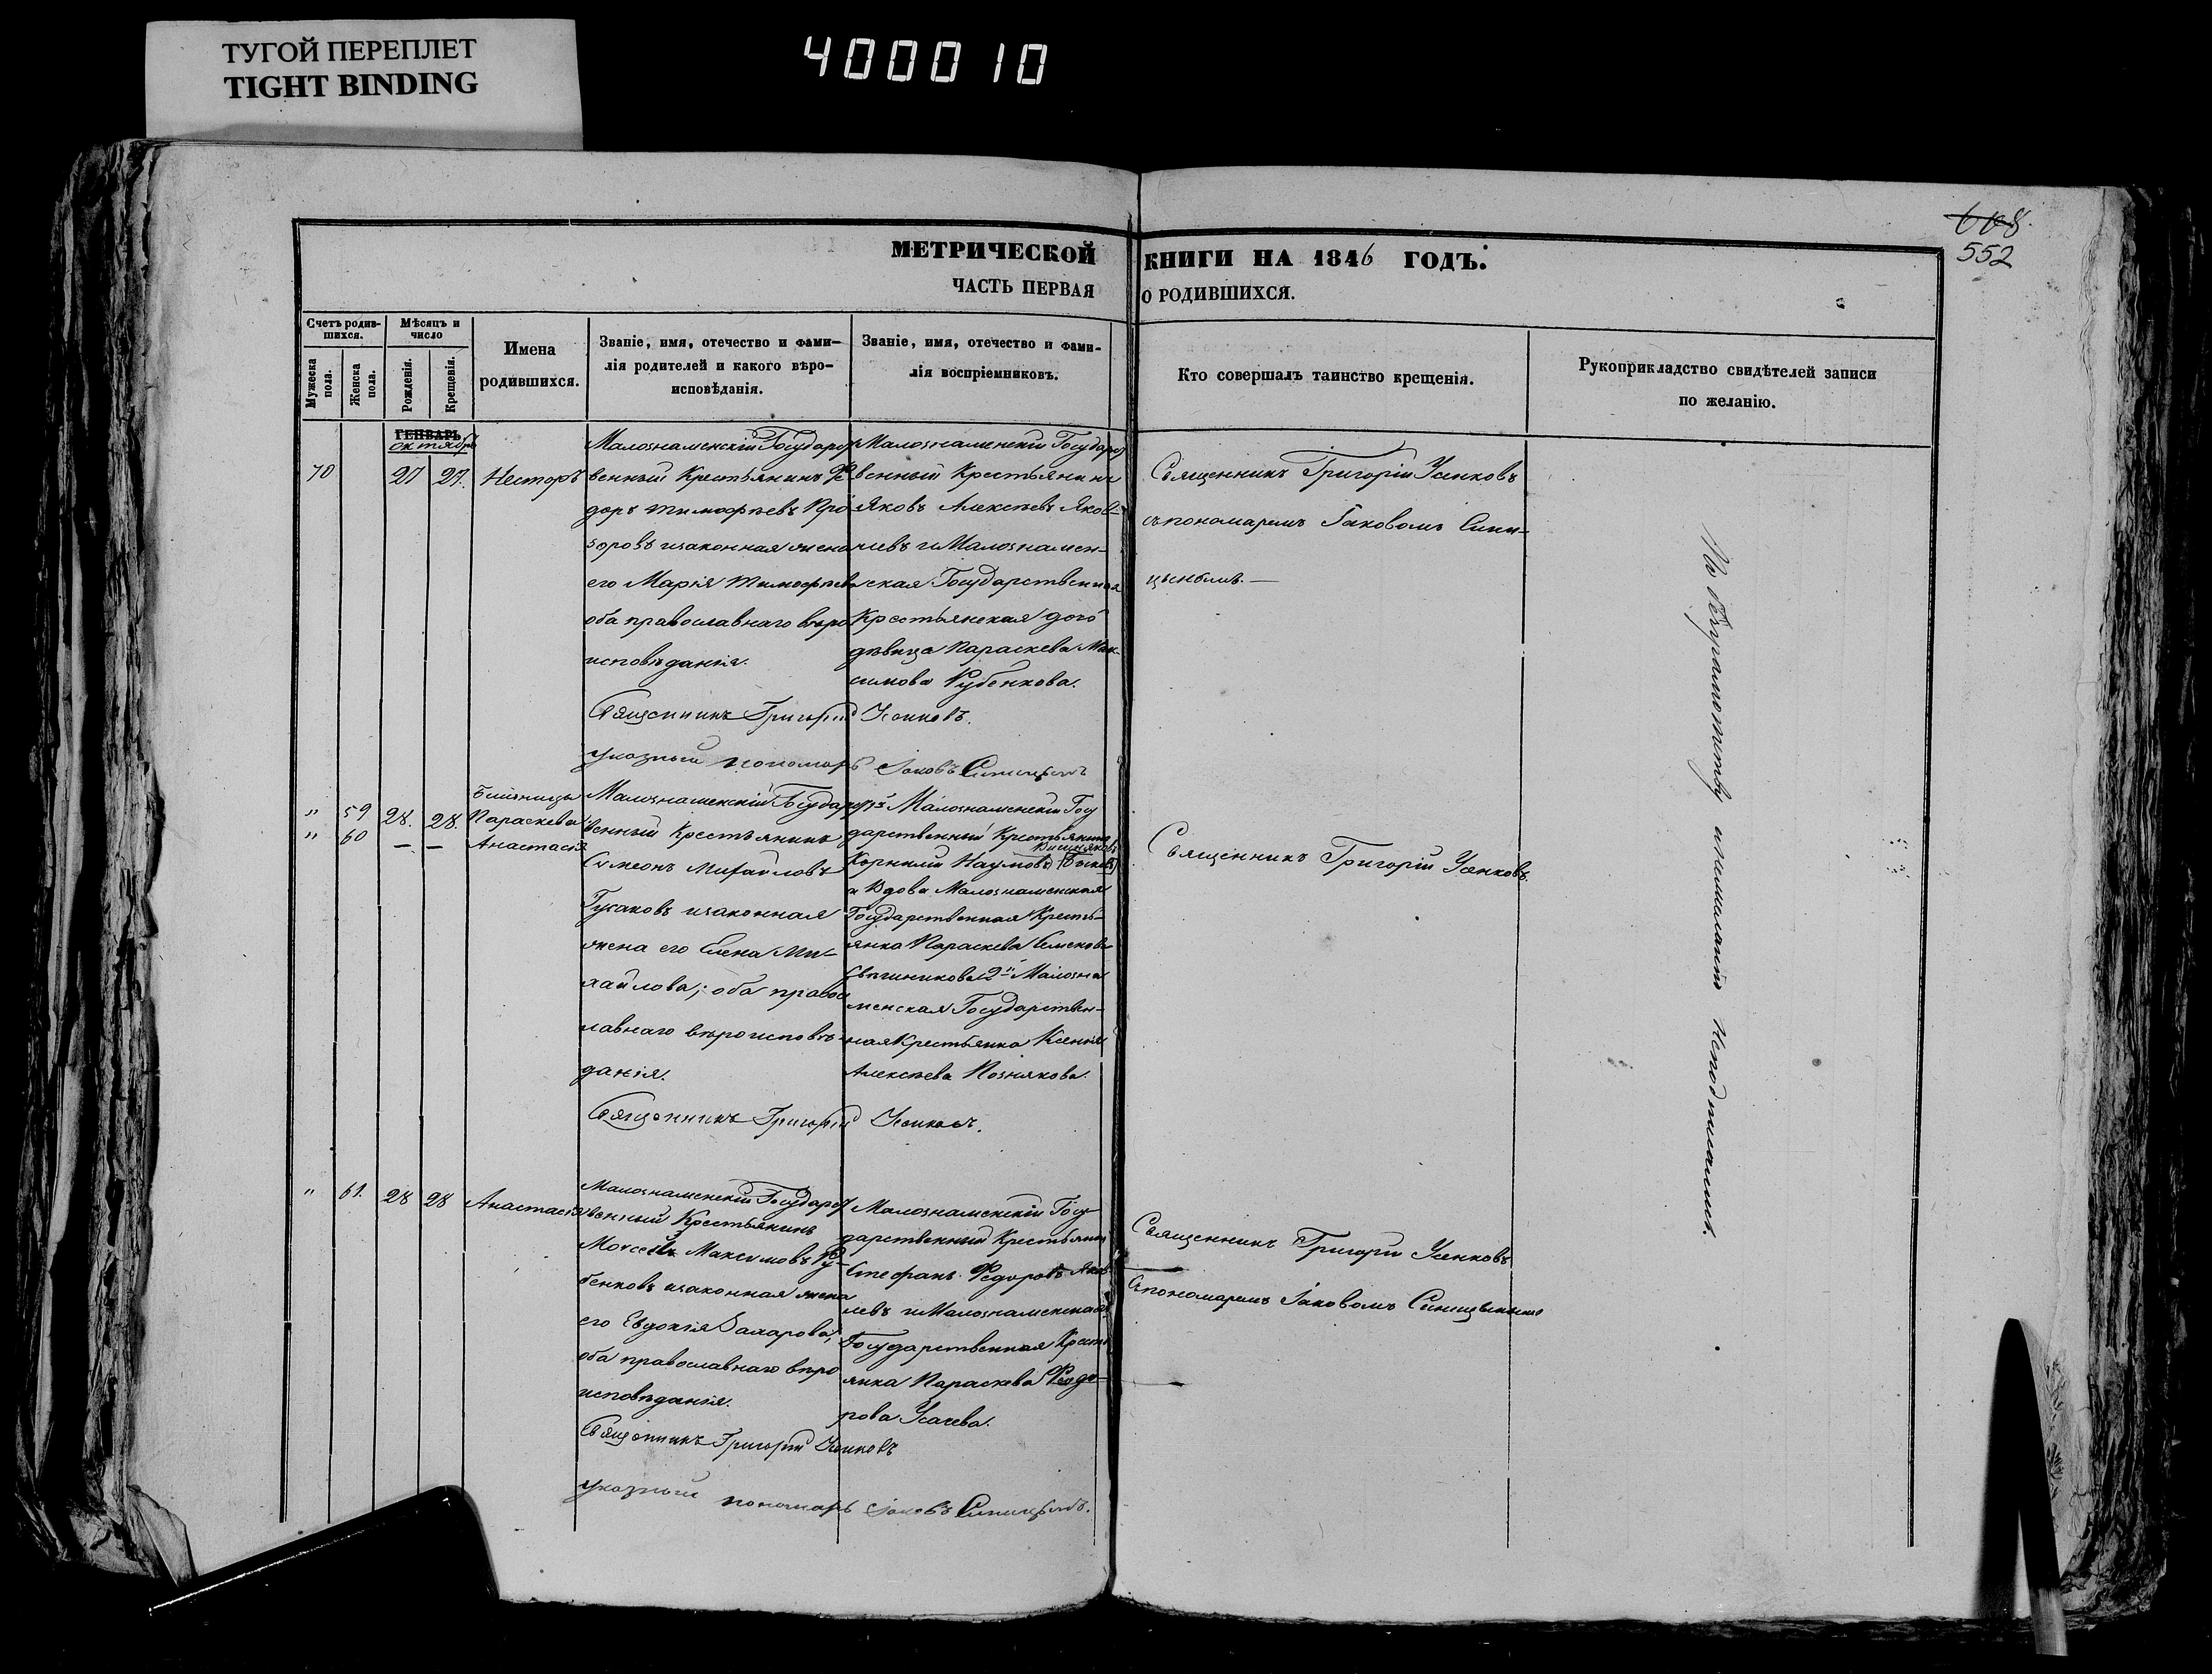 ТУГОЙ ПЕРЕПЛЕТ
TIGHT BINDING
400010
668.
552
МЕТРИЧЕСКОЙ КНИГИ НА 1846 ГОДЪ.
ЧАСТЬ ПЕРВАЯ О РОДИВШИХСЯ.
Счетъ родив-
шихся.
Мужеска
пола.
Женска
пола.
Мѣсяцъ и
число
Рожденія.
Крещенія.
Имена
родившихся.
Званіе, имя, отечество и фами-
лія родителей и какого вѣро-
исповѣданія.
Званіе, имя, отечество и фами-
лія воспріемниковъ.
Кто совершалъ таинство крещенія.
Рукоприкладство свидѣтелей записи
по желанію.
ГЕНВАРЬ
октябрь
70
27
27.
Несторъ
Малознаменскій Государст
венный Крестьянинъ Фе
доръ Тимофѣевъ Про
зоровъ изаконная жена
его Марія Тимофѣева
оба православнаго вѣро
исповѣданія.
Малознаменскій Государст
венный Крестьянинъ
Яковъ Алексѣевъ Яков-
левъ и Малознамен-
ская Государственная
Крестьянская дочь
дѣвица Параскева Мак-
симова Рубенкова.
Священникъ Григорій Усенковъ
съпономаремъ Іаковомъ Сини-
цынымъ.—
Священникъ Григорій Усенковъ.
указный пономарь Іаковъ Синицынъ
" 59 28. 28.
" 60 — —
Близницы
Параскева
Анастасія
Малознаменскій Государст
венный Крестьянинъ
Симеонъ Михайловъ
Гусаковъ изаконная
жена его Елена Ми-
хайлова; оба правос
лавнаго вѣроисповѣ-
данія.
Малознаменскій Госу
дарственный Крестьянинъ
Корнилій Наумовъ
и Вдова Малознаменская
Государственная Кресть-
янка Параскева Семенова
2й Малозна
менская Государствен-
ная Крестьянка Ксенія
Алексѣева Познякова.
Священникъ Григорій Усенковъ.
Священникъ Григорій Усенковъ.
" 61. 28 28 Анастасія
Малознаменскій Государст
венный Крестьянинъ
Моисей Максимовъ Ру-
бенковъ изаконная жена
его Евдокія Захарова,
оба православнаго вѣро
исповѣданія.
Малознаменскій Госу
дарственный Крестьянинъ
Стефанъ Федоровъ Яков
левъ и Малознаменская
Государственная Кресть
янка Параскева Федо-
рова Усачева.
Священникъ Григорій Усенковъ
Спономаремъ Іаковомъ Синицынымъ
Священникъ Григорій Усенковъ
указный пономарь Іаковъ Синицынъ.
По безграмотству и неподписались.